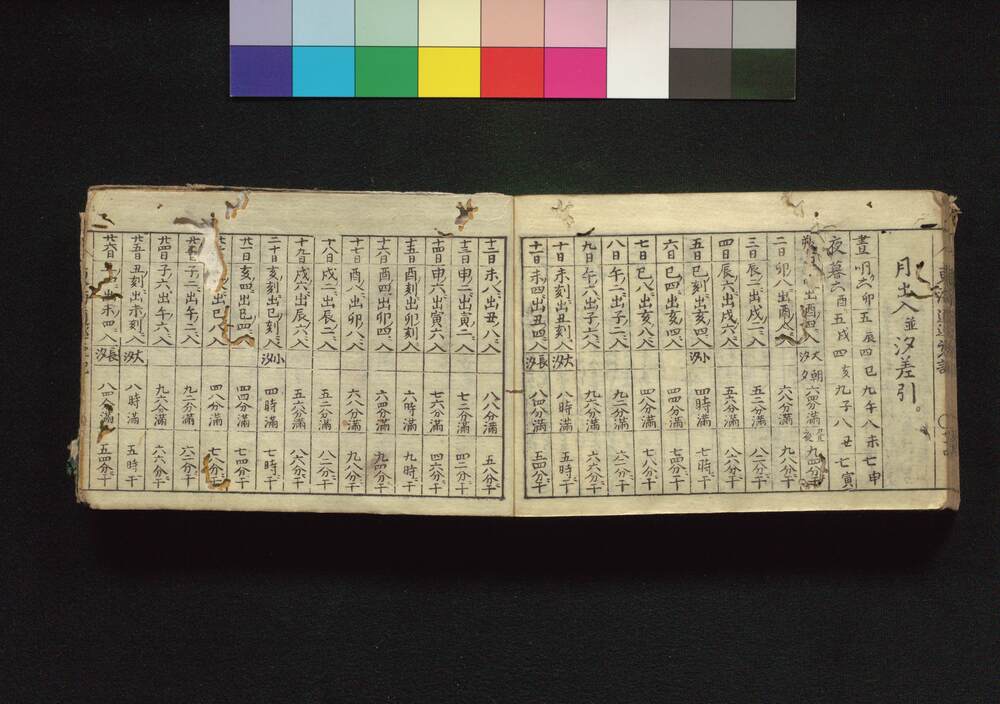 月出入並汐差引。
晝明六卯五辰四巳九午八未七申
夜暮六酉五戌四亥九子八丑七寅
出酉四入 大汐 朝夕 六四分滿 九四分干
二日卯八出酉八入 六八分滿 九八分干
三日辰二出戌二入 五二分滿 八二分干
四日辰六出戌六入 五六分滿 八六分干
五日巳刻出亥四入 小汐 四時滿 七時干
六日巳四出亥四入 四四分滿 七四分干
七日巳八出亥八入 四八分滿 七八分干
八日午二出子二入 九二分滿 六二分干
九日午六出子六入 九六分滿 六六分干
十日未刻出丑刻入 大汐 八時滿 五時干
十一日未四出丑四入 長汐 八四分滿 五四分干
十二日未八出丑八入 八八分滿 五八分干
十三日申二出寅二入 七二分滿 四二分干
十四日申六出寅六入 七六分滿 四六分干
十五日酉刻出卯刻入 六時滿 九時干
十六日酉四出卯四入 六四分滿 九四分干
十七日酉八出卯八入 六八分滿 九八分干
十八日戌二出辰二入 五二分滿 八二分干
十九日戌六出辰六入 五六分滿 八六分干
二十日亥刻出巳刻入 小汐 四時滿 七時干
廿一日亥四出巳四入 四四分滿 七四分干
出巳八入 四八分滿 七八分干
子二出午二入 九二分滿 六二分干
廿四日子六出午六入 九六分滿 六六分干
廿五日丑刻出未刻入 大汐 八時滿 五時干
廿六日 出未四入 長汐 八四分滿 五四分干